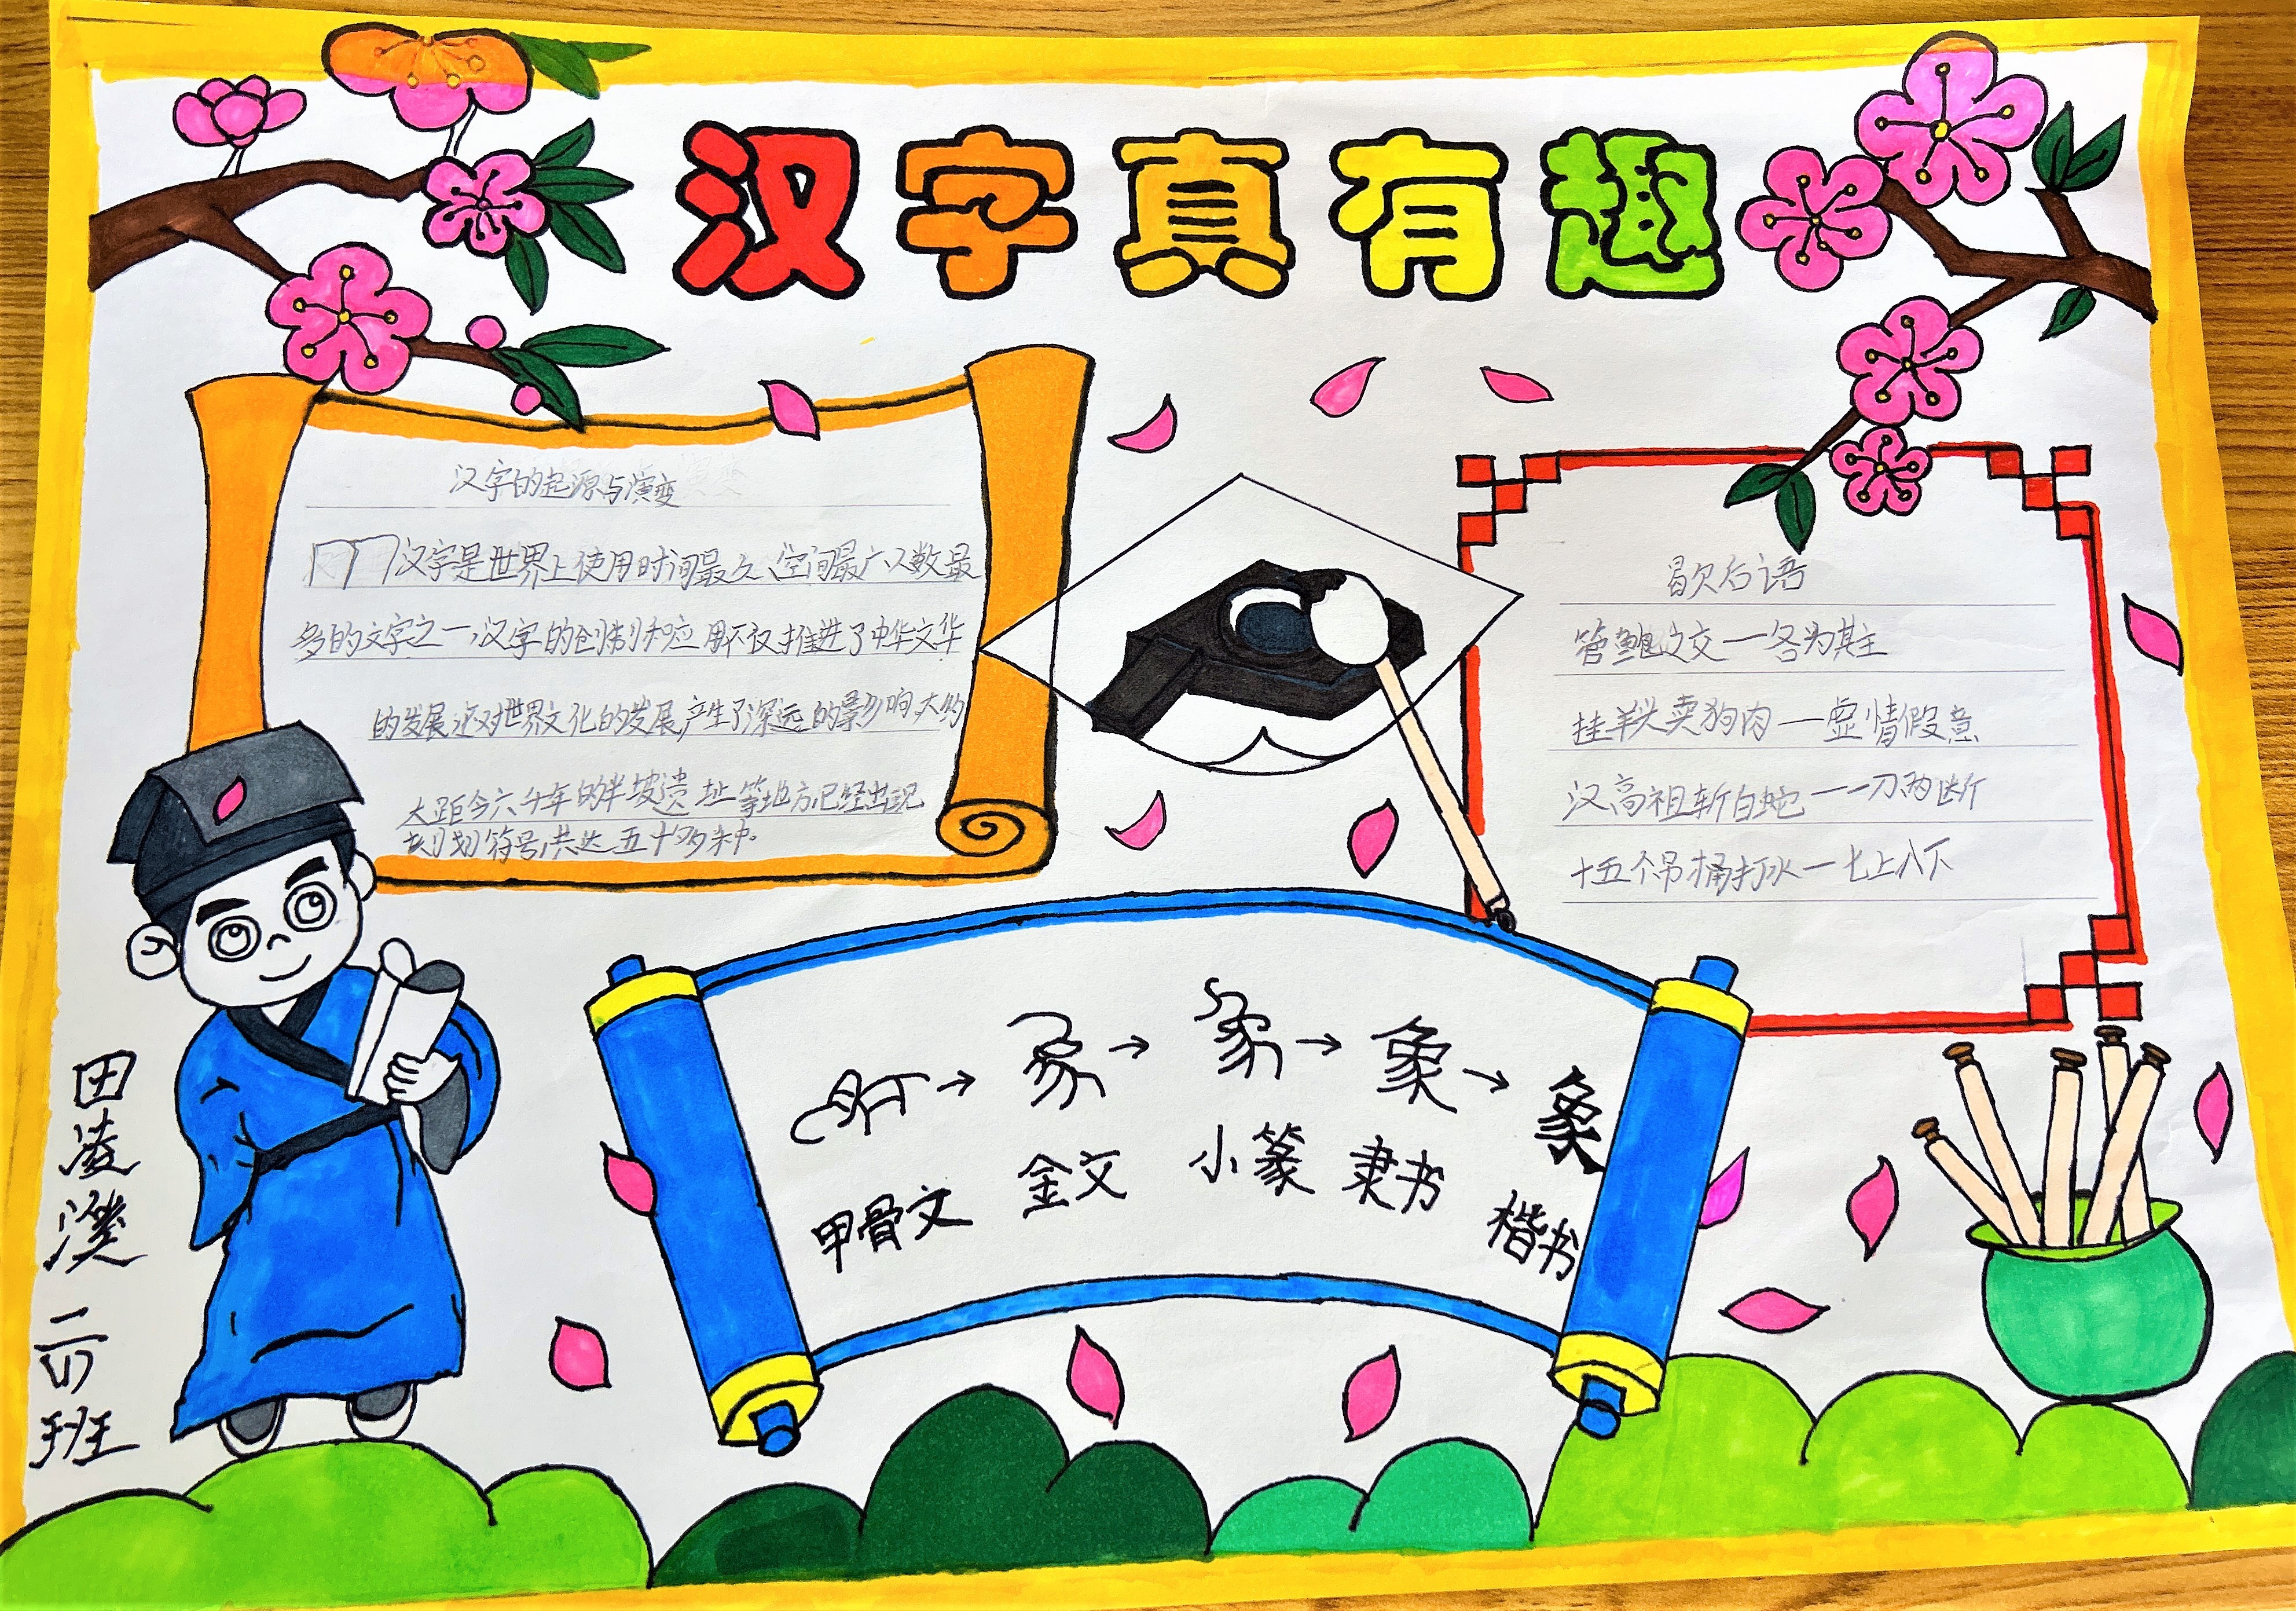 汉字真有趣
汉字的起源与演变
汉字是世界上使用时间最久、空间最广、人数最
多的文字之一,汉字的创制和应用不仅推进了中华文华
的发展,还对世界文化的发展产生了深远的影响,大约
大距今六千年的半坡遗址等地方,已经出现
刻划符号,共达五十多种。
歇后语
管鲍之交一各为其主
挂羊头卖狗肉一虚情假意
汉高祖斩白蛇一一刀两断
十五个吊桶打水一七上八下
象→象→象
甲骨文 金文 小篆 隶书 楷书
田凌濮
二(1)班